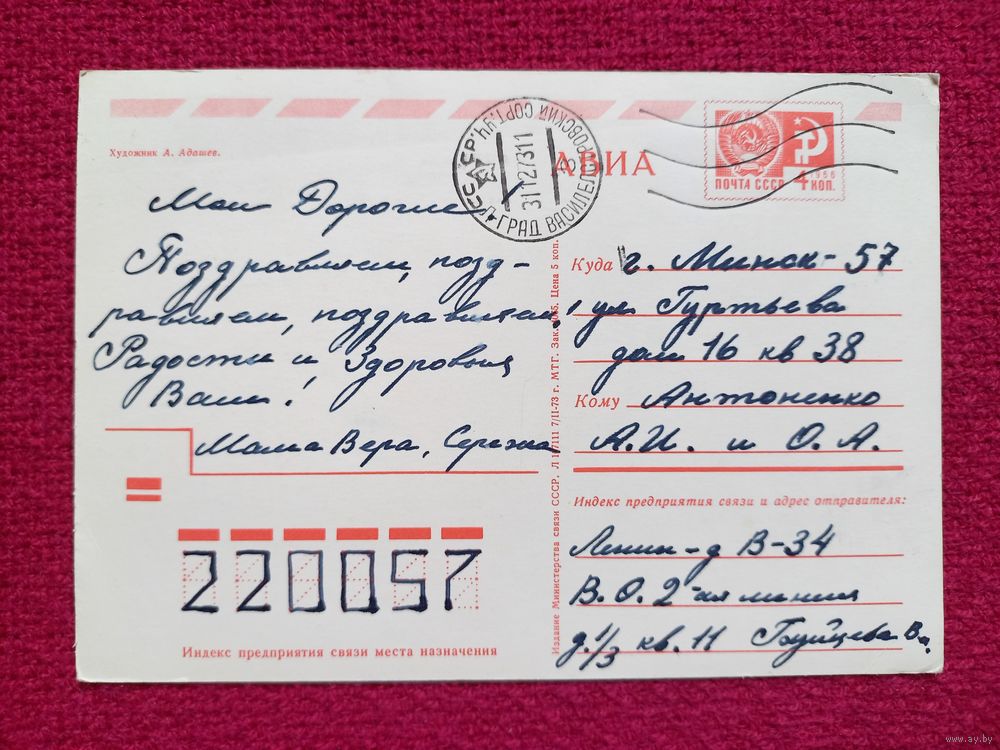 Художник А. Адашев.
АВИА
ПОЧТА СССР
1966
4 КОП.
Л-ГРАД ВАСИЛЕОСТРОВСКИЙ СОРТ. УЧ.
31127311
Мои Дорогие
Поздравляем, позд-
равляем, поздравляем!
Радости и Здоровья
Вам!
Мама Вера, Сережа
220057
Индекс предприятия связи места назначения
Издание Министерства связи СССР. 7/II-73 г. МТГ. Зак. Цена 5 коп.
Куда г. Минск-57
ул Гуртьева
дом 16 кв 38
Кому Антоненко
А.И. и О.А.
Индекс предприятия связи и адрес отправителя:
Ленин-д В-34
В.О. 2-ая линия
д. 1/3 кв. 11 В.
www.ay.by